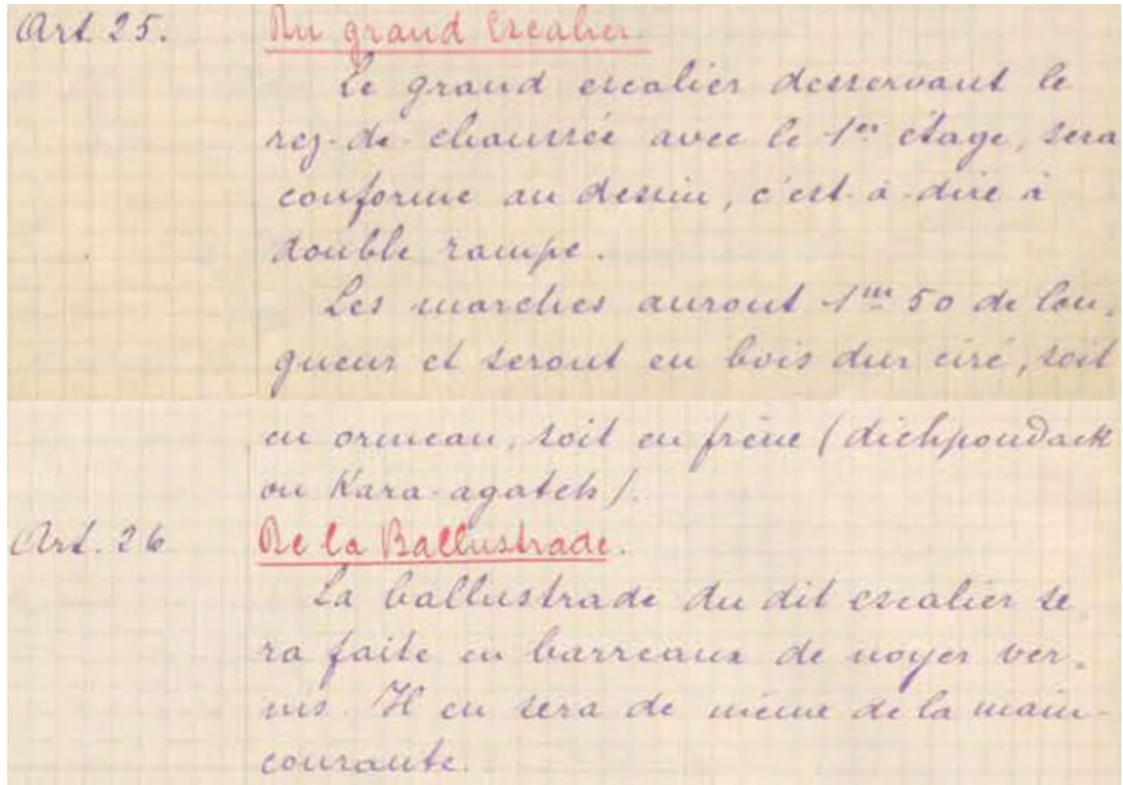 Art. 25. Du grand Escalier.
Le grand escalier desservant le
rez-de-chaussée avec le 1er étage, sera
conforme au dessin, c'est-à-dire à
double rampe.
Les marches auront 1m 50 de lon-
gueur et seront en bois dur ciré, soit
en ormeau, soit en frêne (dichpoudack
ou Kara-agatch).
Art. 26 De la Ballustrade.
La ballustrade du dit escalier se-
ra faite en barreaux de noyer ver-
nis. Il en sera de même de la main-
courante.